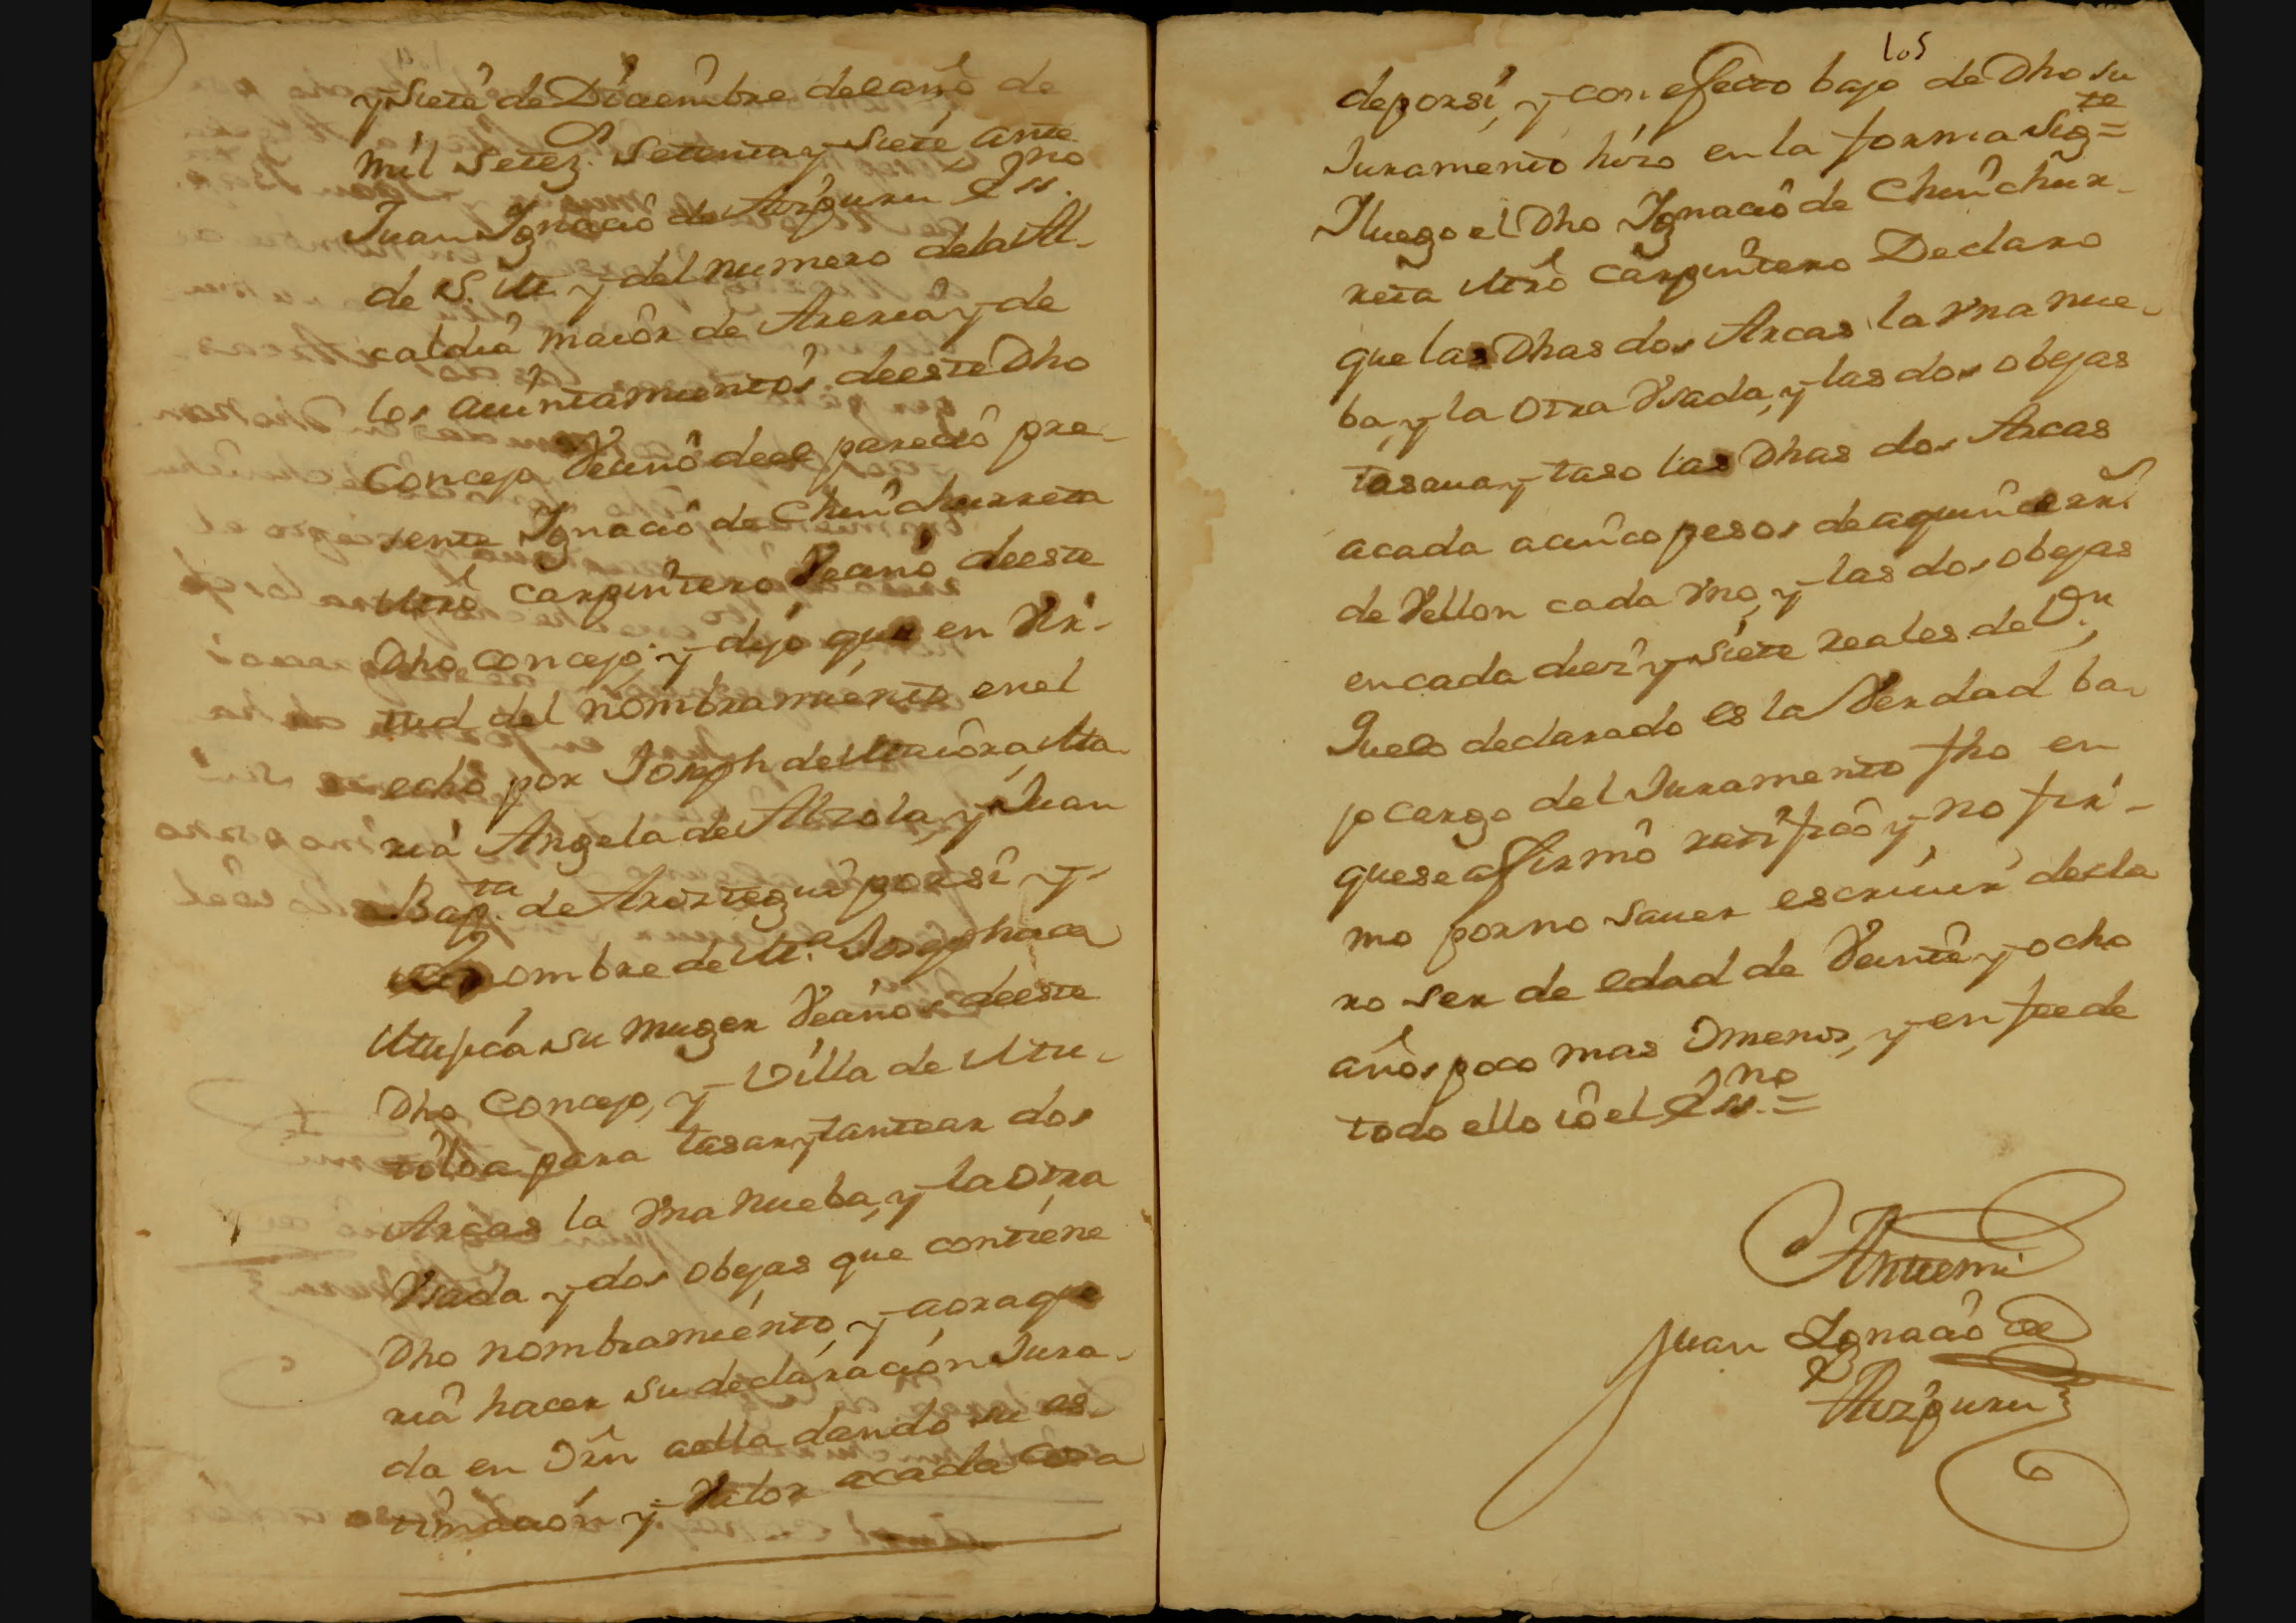 y Siete de Diciembre del año de
mil Setez.s Settenta y Siete ante
Juan Ignacio de Aizpuru Ess.no
de S. M. y del numero de la Al-
caldia maior de Areria y de
los aiuntamientos de este Dho
Concejo Vecino de el parecio pre-
sente Ignacio de Chunchurreta
Mro Carpintero Vecino de este
Dho Concejo, y dijo que en Vir-
tud del nombramiento en el
echo por Joseph de Maiora, Ma-
ria Angela de Alzola, y Juan
Bap.ta de Aroztegui por si y
nombre de M.a Josepha de
Mujica su muger Vecinos de este
Dho Concejo, y Villa de Mu-
tiloa para tasar y tantear dos
Arcas la Vna Nueba, y la Otra
Vsada y dos Obejas que contiene
Dho nombramiento, y aora que
ria hacer su declaracion Jura-
da en Orn a ella dando su es-
timacion y Valor a cada cosa
105
de por si, y con efecto bajo de Dho su
Juramento hizo en la forma Sig.te =
Y luego el Dho Ignacio de Chunchur-
reta Mro Carpintero Declaro
que las Dhas dos Arcas la Vna nue-
ba, y la Otra Vsada, y las dos obejas
tasaua y taso las Dhas dos Arcas
a cada a cinco pesos de a quince rr.s
de Vellon cada Vno, y las dos obejas
en cada diez y Siete reales de V.n
Que lo declarado es la Verdad ba-
jo cargo del Juramento fho en
que se affirmo ratifico y no fir-
mo por no saver escriuir decla
ro ser de edad de Veinte y ocho
años poco mas O menos, y en fee de
todo ello io el Ess.no =
Ante mi
Juan Ignacio de
Aizpuru